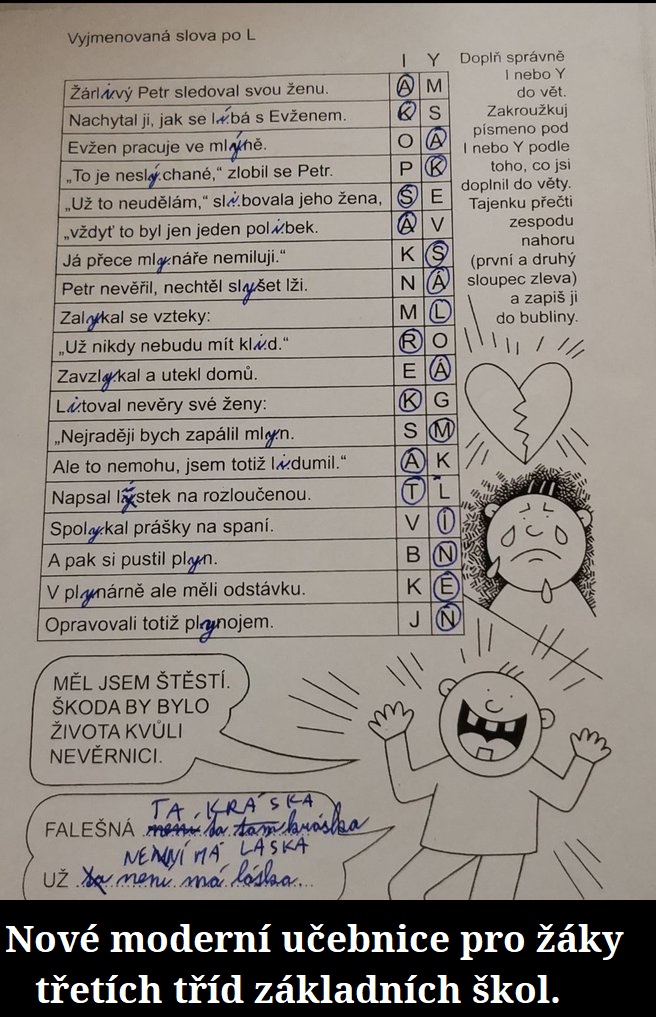 Vyjmenovaná slova po L
I Y
Žárlivý Petr sledoval svou ženu. A M
Nachytal ji, jak se líbá s Evženem. K S
Evžen pracuje ve mlýně. O A
„To je neslýchané,“ zlobil se Petr. P K
„Už to neudělám,“ slibovala jeho žena, S E
„vždyť to byl jen jeden polibek. Á V
Já přece mlynáře nemiluji.“ K S
Petr nevěřil, nechtěl slyšet lži. N Á
Zalykal se vzteky: M L
„Už nikdy nebudu mít klid.“ R O
Zavzlykal a utekl domů. E Á
Litoval nevěry své ženy: K G
„Nejraději bych zapálil mlýn. S M
Ale to nemohu, jsem totiž lidumil.“ A K
Napsal lístek na rozloučenou. T L
Spolykal prášky na spaní. V Í
A pak si pustil plyn. B N
V plynárně ale měli odstávku. K E
Opravovali totiž plynojem. J N
Doplň správně
I nebo Y
do vět.
Zakroužkuj
písmeno pod
I nebo Y podle
toho, co jsi
doplnil do věty.
Tajenku přečti
zespodu
nahoru
(první a druhý
sloupec zleva)
a zapiš ji
do bubliny.
MĚL JSEM ŠTĚSTÍ.
ŠKODA BY BYLO
ŽIVOTA KVŮLI
NEVĚRNICI.
TA KRÁSKA
FALEŠNÁ není ta tam kráska
NENNÍ MÁ LÁSKA
UŽ ta není má láska...
Nové moderní učebnice pro žáky
třetích tříd základních škol.